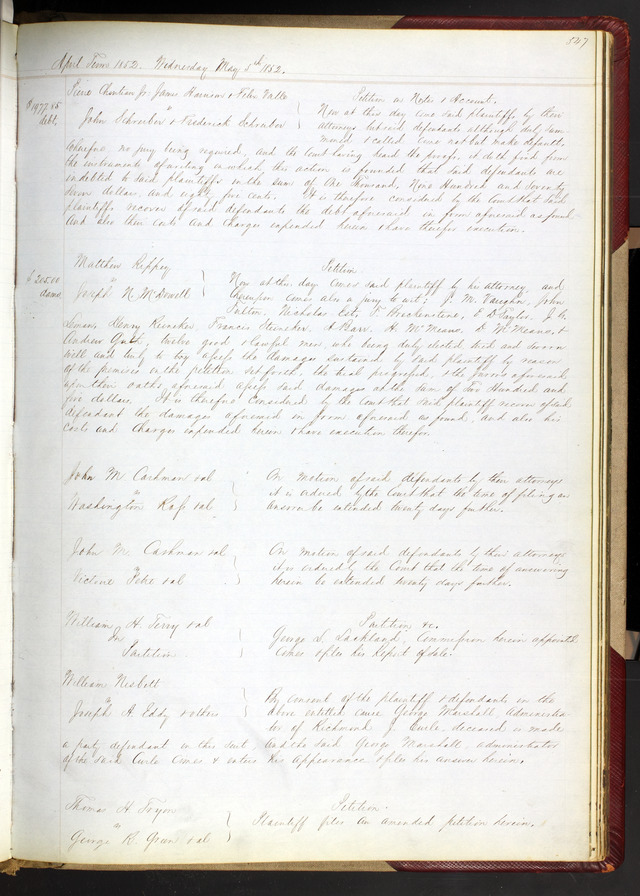 547
April Term 1852. Wednesday May 5th 1852.
Pierre Chouteau Jr. James Harrison & Felix Valle
vs
John Schreiber & Frederick Schreiber
$1977.85
debt.
Petition on Notes & Account.
Now at this day come said plaintiffs by their
attorney but said defendants although duly sum
moned & called come not but make default
wherefore no jury being required, and the Court having heard the proofs, it doth find from
the instruments of writing on which this action is founded that said defendants are
indebted to said plaintiffs in the sum of One Thousand, Nine Hundred and Seventy
Seven dollars, and eighty five cents. It is therefore considered by the Court that said
plaintiffs recover of said defendants the debt aforesaid in form aforesaid as found
and also their costs and charges expended herein & have therefor execution.
Matthew Rippey
vs
Joseph N. McDowell
$205.00
dams
Petition
Now at this day comes said plaintiff by his attorney and
thereupon comes also a jury to wit: J. M. Vaughn, John
Nicholas F. D. Taylor, J. A.
Leman, Henry Francis A. Barr, H. McMeans, D. W. Means, &
Andrew twelve good & lawful men, who being duly elected tried and sworn
well and truly to try assess the damages sustained by said plaintiff by reason
of the premises in the petition set forth, the trial progressed, & the jurors aforesaid
upon their oaths aforesaid assess said damages at the sum of Two Hundred and
five dollars. It is therefore considered by the Court that said plaintiff recover of said
defendant the damages aforesaid in form aforesaid as found, and also his
costs and charges expended herein & have execution therefor.
John M. Cashman et al
vs
Washington Rafe et al
On motion of said defendants by their attorneys
it is ordered by the Court that the time of filing an
answer be extended twenty days further.
John M. Cashman et al
vs
et al
On motion of said defendants by their attorneys
it is ordered by the Court that the time of answering
herein be extended twenty days further.
William H. Terry et al
on
Partition
Partition &c.
George S. Lackland, Commissioner herein appointed
comes & files his Report of Sale.
William Nisbett
vs
Joseph A. Eddy & others
By consent of the plaintiff & defendants in the
above entitled cause George Marshall, Administra
tor of Richmond J. Curle, deceased is made
a party defendant in this suit, and the said George Marshall, administrator
of the said Curle comes & enters his appearance & files his answer herein.
Thomas H. Tryon
vs
George R. Green et al
Petition.
Plaintiff files an amended petition herein.